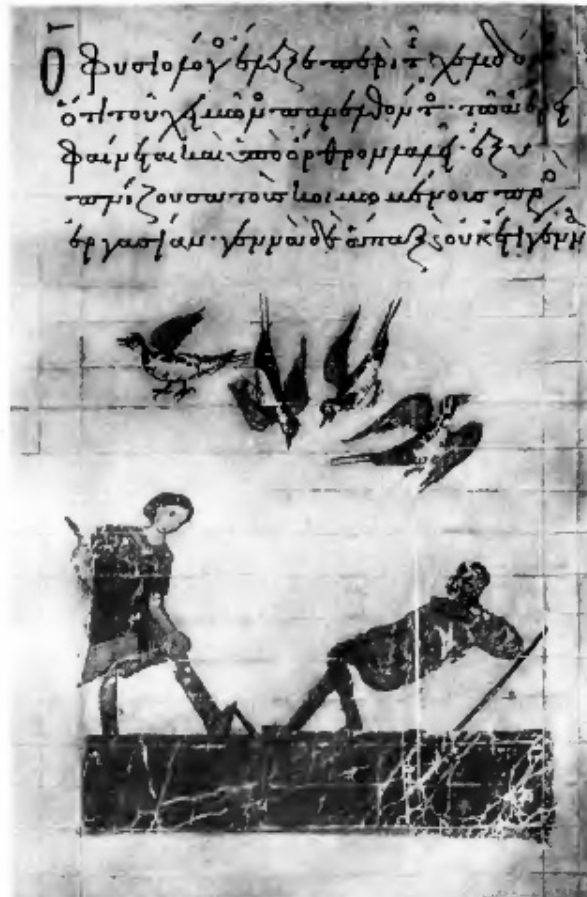 Ὁ φυσιολόγο ἔλεξε περὶ τ χελιδό
ὅτι τοῦ χειμῶνο παρελθόντο
φαίνεται καὶ ὑπὸ ὄρθρον λαλεῖ ἐξυ
πνίζουσα τοὺς κοιμωμένους πρὸ
ἐργασίαν· γεννᾶ δὲ ἅπαξ οὐκέτι γεννᾶ